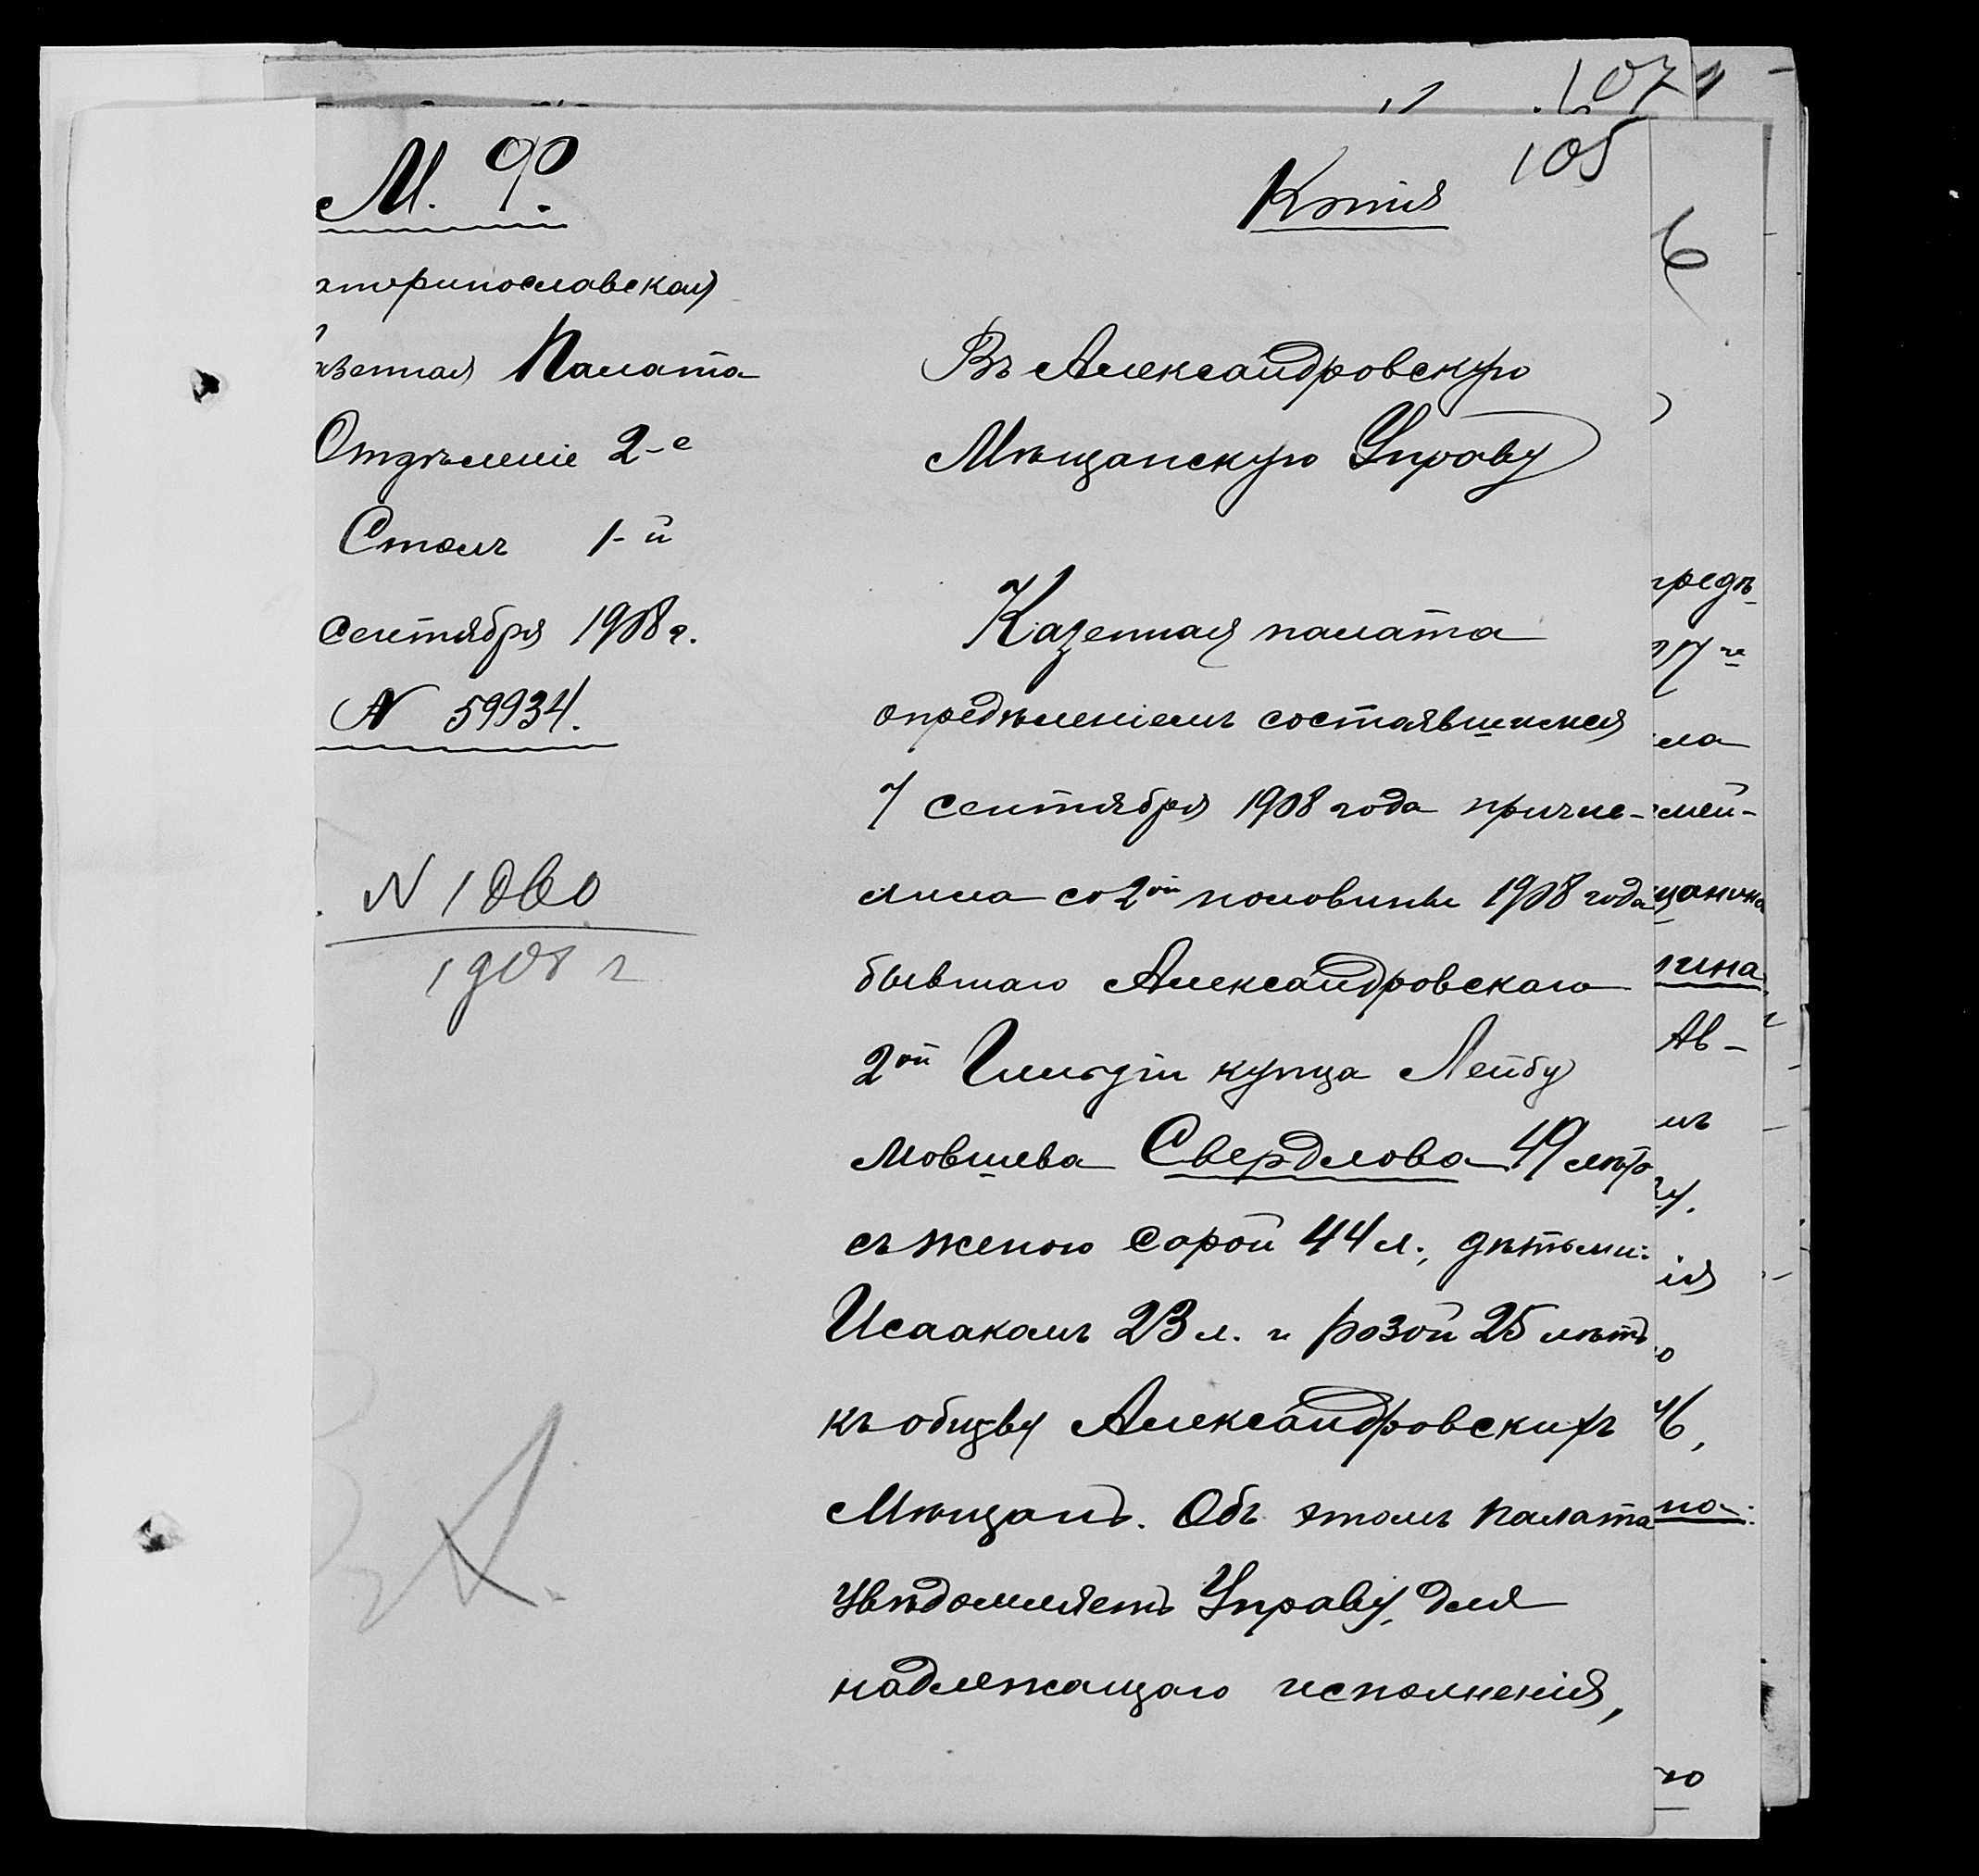 107
105
М. Ф.
Копія
атеринославская
азенная Палата
Отдѣленіе 2-е
Столъ 1-й
Сентября 1908 г.
N 59934.
N 1060
1908 г
Въ Александровскую
Мѣщанскую Управу
Казенная палата
опредѣленіемъ состоявшимся
7 Сентября 1908 года причи-
слила со 2ой половины 1908 года
бывшаго Александровскаго
2ой Гильдіи купца Лейбу
Мовшева Свердлова 49 лѣтъ
съ женою Сарой 44 л., дѣтьми:
Исаакомъ 23 л. и Розой 25 лѣтъ
къ общву Александровскихъ
Мѣщанъ. Объ этомъ палата
увѣдомляетъ Управу, для
надлежащаго исполненія,
предѣ
ла
мей-
щанина
гина
Ав-
мъ
ія
но